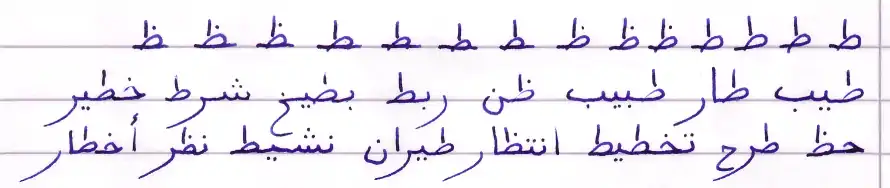 ط ط ط ط ظ ظ ظ ط ط ط ط ظ ظ ظ
طيب طار طبيب ظن ربط بطيخ شرط خطير
حظ طرح تخطيط انتظار طيران نشيط نظر أخطار